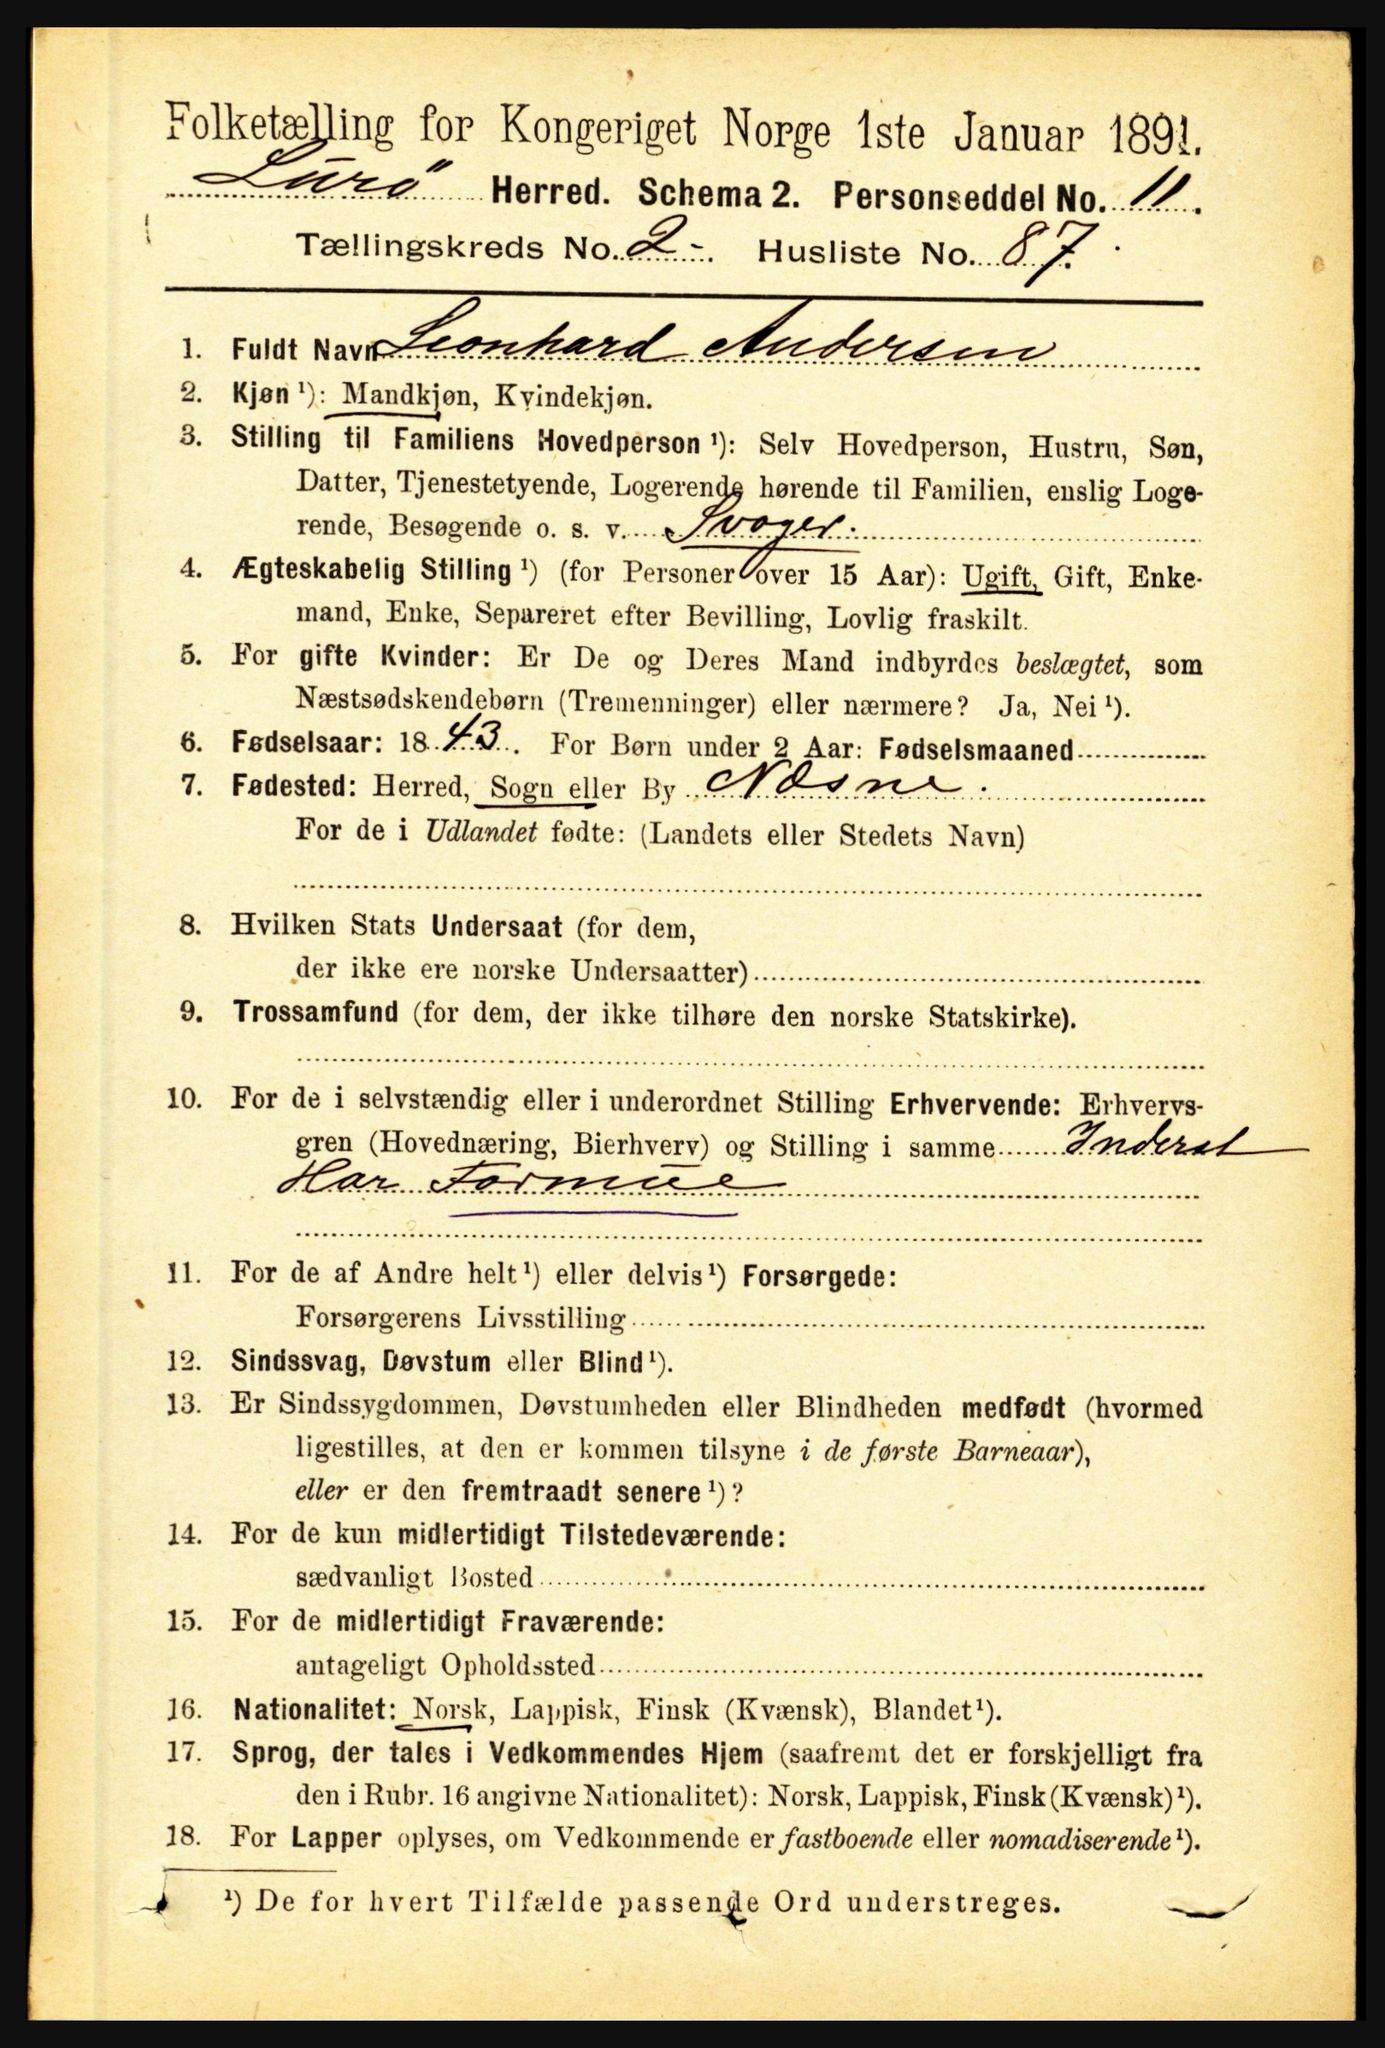 Folketælling for Kongeriget Norge 1ste Januar 1891.
Lurö Herred. Schema 2. Personseddel No. 11.
Tællingskreds No. 2-. Husliste No. 87.
1. Fuldt Navn Leonhard Andersen
2. Kjøn ¹): Mandkjøn, Kvindekjøn.
3. Stilling til Familiens Hovedperson ¹): Selv Hovedperson, Hustru, Søn,
Datter, Tjenestetyende, Logerende hørende til Familien, enslig Loge-
rende, Besøgende o. s. v. Svoger.
4. Ægteskabelig Stilling ¹) (for Personer over 15 Aar): Ugift, Gift, Enke-
mand, Enke, Separeret efter Bevilling, Lovlig fraskilt.
5. For gifte Kvinder: Er De og Deres Mand indbyrdes beslægtet, som
Næstsødskendebørn (Tremenninger) eller nærmere? Ja, Nei ¹).
6. Fødselsaar: 1843. For Børn under 2 Aar: Fødselsmaaned
7. Fødested: Herred, Sogn eller By Næsne.
For de i Udlandet fødte: (Landets eller Stedets Navn)
8. Hvilken Stats Undersaat (for dem,
der ikke ere norske Undersaatter)
9. Trossamfund (for dem, der ikke tilhøre den norske Statskirke).
10. For de i selvstændig eller i underordnet Stilling Erhvervende: Erhvervs-
gren (Hovednæring, Bierhverv) og Stilling i samme Inderst
Har Formue
11. For de af Andre helt ¹) eller delvis ¹) Forsørgede:
Forsørgerens Livsstilling
12. Sindssvag, Døvstum eller Blind ¹).
13. Er Sindssygdommen, Døvstumheden eller Blindheden medfødt (hvormed
ligestilles, at den er kommen tilsyne i de første Barneaar),
eller er den fremtraadt senere ¹)?
14. For de kun midlertidigt Tilstedeværende:
sædvanligt Bosted
15. For de midlertidigt Fraværende:
antageligt Opholdssted
16. Nationalitet: Norsk, Lappisk, Finsk (Kvænsk), Blandet ¹).
17. Sprog, der tales i Vedkommendes Hjem (saafremt det er forskjelligt fra
den i Rubr. 16 angivne Nationalitet): Norsk, Lappisk, Finsk (Kvænsk) ¹).
18. For Lapper oplyses, om Vedkommende er fastboende eller nomadiserende ¹).
¹) De for hvert Tilfælde passende Ord understreges.